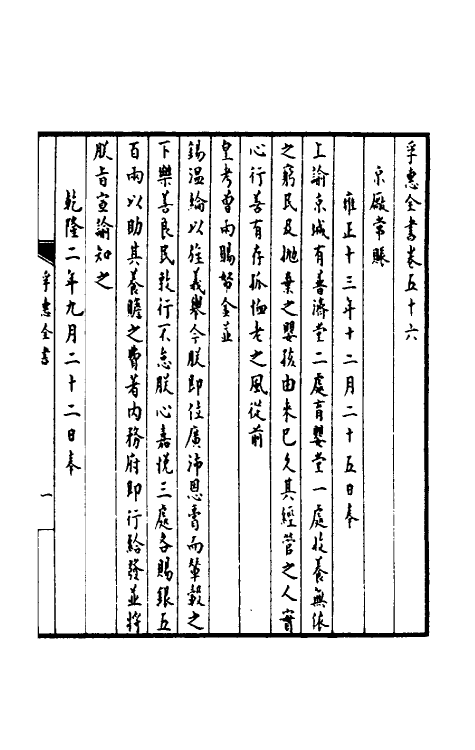 孚惠全書卷五十六
京廠常賑
雍正十三年十二月二十五日奉
上諭京城有普濟堂二處育嬰堂一處收養無依
之窮民及拋棄之嬰孩由來已久其經管之人實
心行善有存孤恤老之風從前
皇考曾兩賜帑金並
錫溫綸以旌義舉今朕即位廣沛恩膏而輦轂之
下樂善良民敦行不怠朕心嘉悅三處各賜銀五
百兩以助其養贍之費著內務府即行給發並將
朕旨宣諭知之
乾隆二年九月二十二日奉
孚惠全書
一